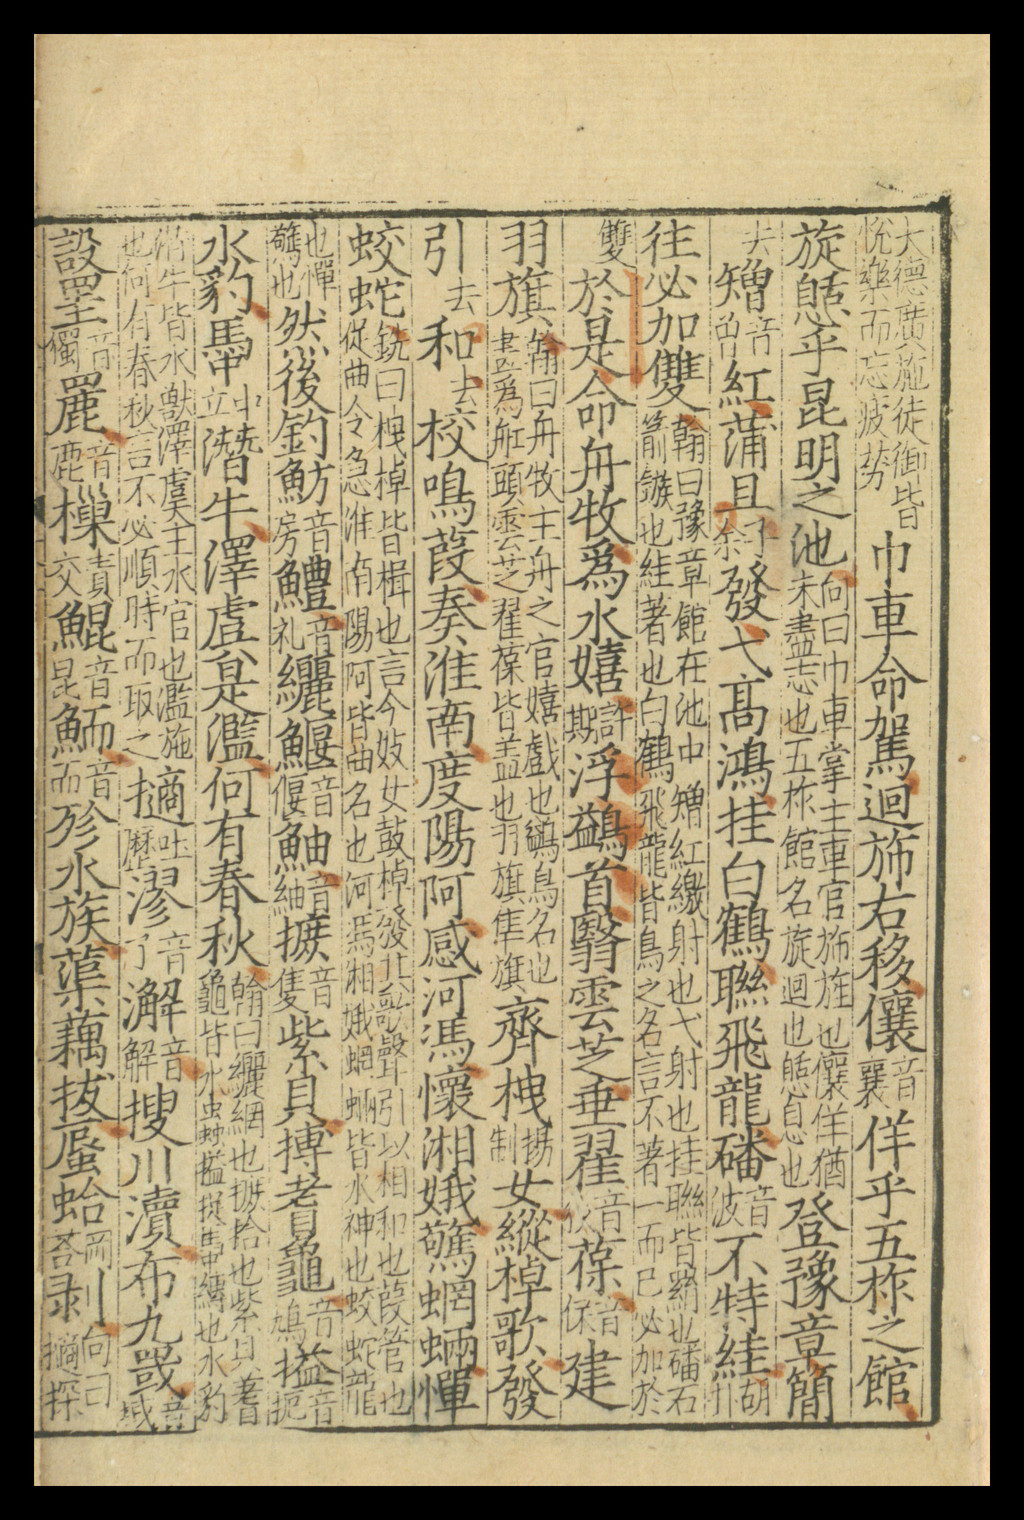 大德廣施徒御皆悅樂而忘疲勞巾車命駕迴斾右移儴音襄佯乎五柞之館
旋憩乎昆明之池向曰巾車掌主車官斾旌也儴佯猶未盡志也五柞館名旋迴也憩息也登豫章簡
矰音曾紅蒲且子余發弋高鴻挂白鶴聯飛龍磻音波不特絓胡卦
往必加雙翰曰豫章館在池中矰紅繳射也弋射也挂聯皆絓也磻石箭鏃也絓著也白鶴飛龍皆鳥之名言不著一而已必加於
雙於是命舟牧爲水嬉許期浮鷁首翳雲芝垂翟葆音保建
羽旗翰曰舟牧主舟之官嬉戲也鷁鳥名也畫爲舡頭雲芝翟葆皆盖也羽旗隼旗齊栧揚制女縱棹歌發
引去和去校鳴葭奏淮南度陽阿感河馮懷湘娥驚蝄蜽憚
蛟蛇銑曰栧棹皆楫也言今妓女鼓棹發其歌聲引以相和也葭管也從曲令急淮南陽阿皆曲名也河馮湘娥蝄蜽皆水神也蛟蛇龍
也憚驚也然後釣魴音房鱧音礼纚鰋音偃鮋音紬摭音隻紫貝搏耆龜音鳩搤音扼
水豹馽中立潛牛澤虞是濫何有春秋翰曰纚網也摭拾也紫貝蓍龜皆水虫搤捉馽縛也水豹
潛牛皆水獸澤虞主水官也濫施也何有春秋言不必順時而取之摘吐歷漻音了澥音解搜川瀆布九罭音域
設罜音獨䍡音鹿樔責交鯤音昆鮞音而殄水族蕖藕拔蜃蛤剥向曰摘探